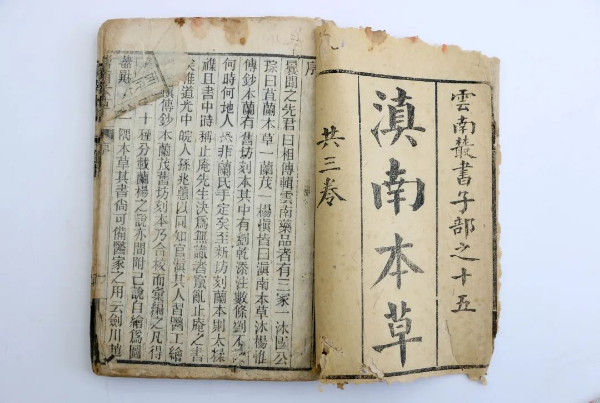 雲南叢書子部之十五
滇南本草
共三卷
序
曩聞之先君
曰相傳輯雲南藥品者有三家一沐國公
琮曰苴蘭本
草一蘭茂一楊慎皆曰滇南本草沐楊惟
傳鈔本蘭有舊坊刻本其中有劉乾添注數條劉不
何時何地人
非蘭氏手定矣至新坊刻蘭本則太樣
襍且書中時
稱止庵先生決爲無識者竄亂止庵之書
矣惟道光中
皖人孫兆蕙以同知官滇其人習醫工繪
傳鈔
本蘭茂舊坊刻本乃合校而彙編之凡得
十種分載蘭楊之說亦間附己說自繪爲圖
隅本草其書尙可備醫家之用云劍川趙